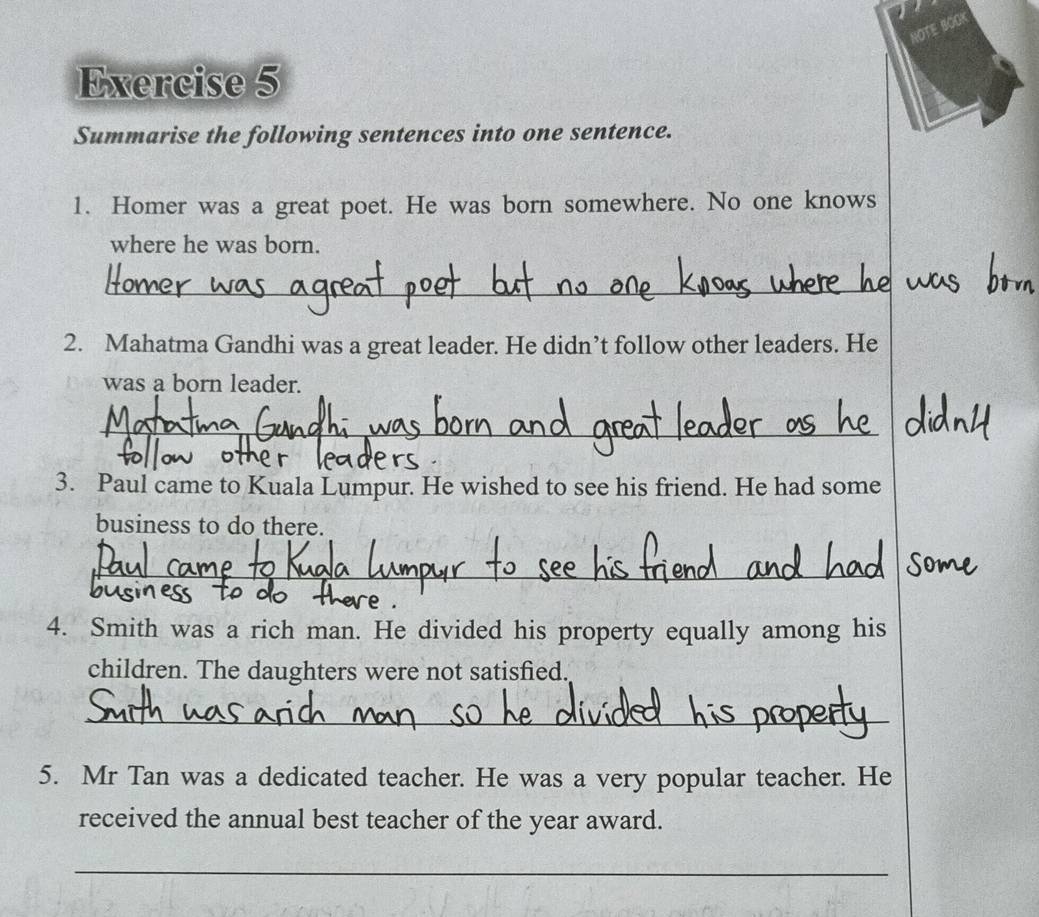 NOTE BOOK
Exercise 5
Summarise the following sentences into one sentence.
1. Homer was a great poet. He was born somewhere. No one knows
where he was born.
Homer was a great poet but no one knows where he was born
2. Mahatma Gandhi was a great leader. He didn't follow other leaders. He
was a born leader.
Mahatma Gandhi was born and great leader as he didn't
follow other leaders.
3. Paul came to Kuala Lumpur. He wished to see his friend. He had some
business to do there.
Paul came to Kuala lumpur to see his friend and had some
business to do there.
4. Smith was a rich man. He divided his property equally among his
children. The daughters were not satisfied.
Smith was a rich man so he divided his property
5. Mr Tan was a dedicated teacher. He was a very popular teacher. He
received the annual best teacher of the year award.